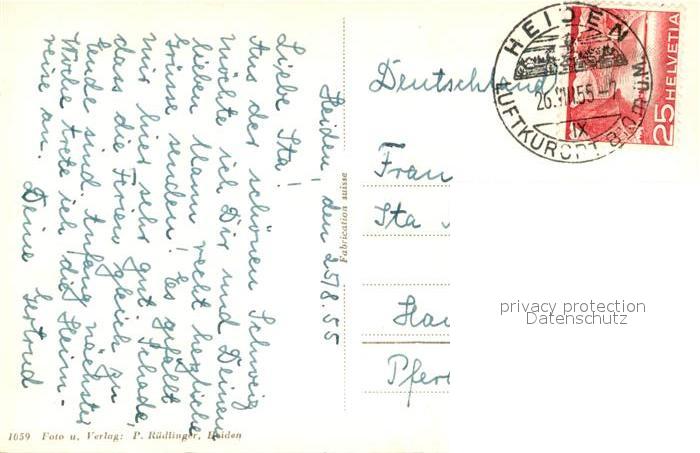 Heiden, den 25.8.55
Liebe Ita!
Aus der schönen Schweiz
möchte ich Dir und Deinem
lieben Mann recht herzliche
Grüsse senden! Es gefällt
mir hier sehr gut. Schade,
dass die Ferien gleich zu
Ende sind. Anfang nächster
Woche trete ich die Heim-
reise an. Deine Gertrud
1059 Foto u. Verlag: P. Rüdlinger, Heiden
Fabrication suisse
Deutschland
Frau
Ita
Hau
Pfer
HEIDEN
26.VIII.55
IX
LUFTKURORT 810 m ü.M.
25 HELVETIA
privacy protection
Datenschutz